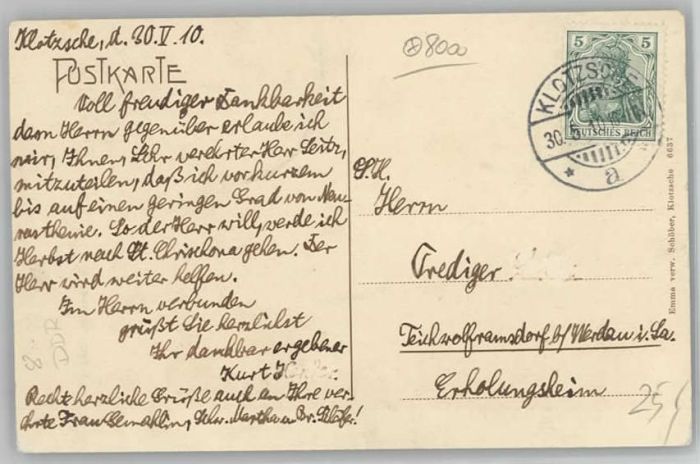 Klotzsche, d. 30.V.10.
POSTKARTE
Voll freudiger Dankbarkeit
dem Herrn gegenüber erlaube ich
mir, Ihnen, sehr verehrter Herr Seitz,
mitzuteilen, daß ich vor kurzem
bis auf einen geringen Grad von Neu-
rasthenie. So der Herr will, werde ich
Herbst nach St. Chrischona gehen. Der
Herr wird weiter helfen.
Im Herrn verbunden
grüßt Sie herzlichst
Ihr dankbar ergebener
Kurt
Recht herzliche Grüße auch an Ihre ver-
ehrte Frau Gemahlin, Schw. Martha u. Br.
80a
5 5
DEUTSCHES REICH
KLOTZSCHE
30.5.10
* a
S. H.
Herrn
Prediger
Teichwolframsdorf b/Werdau i. Sa.
Erholungsheim
Emma verw. Schöber, Klotzsche 6637
DDR
25